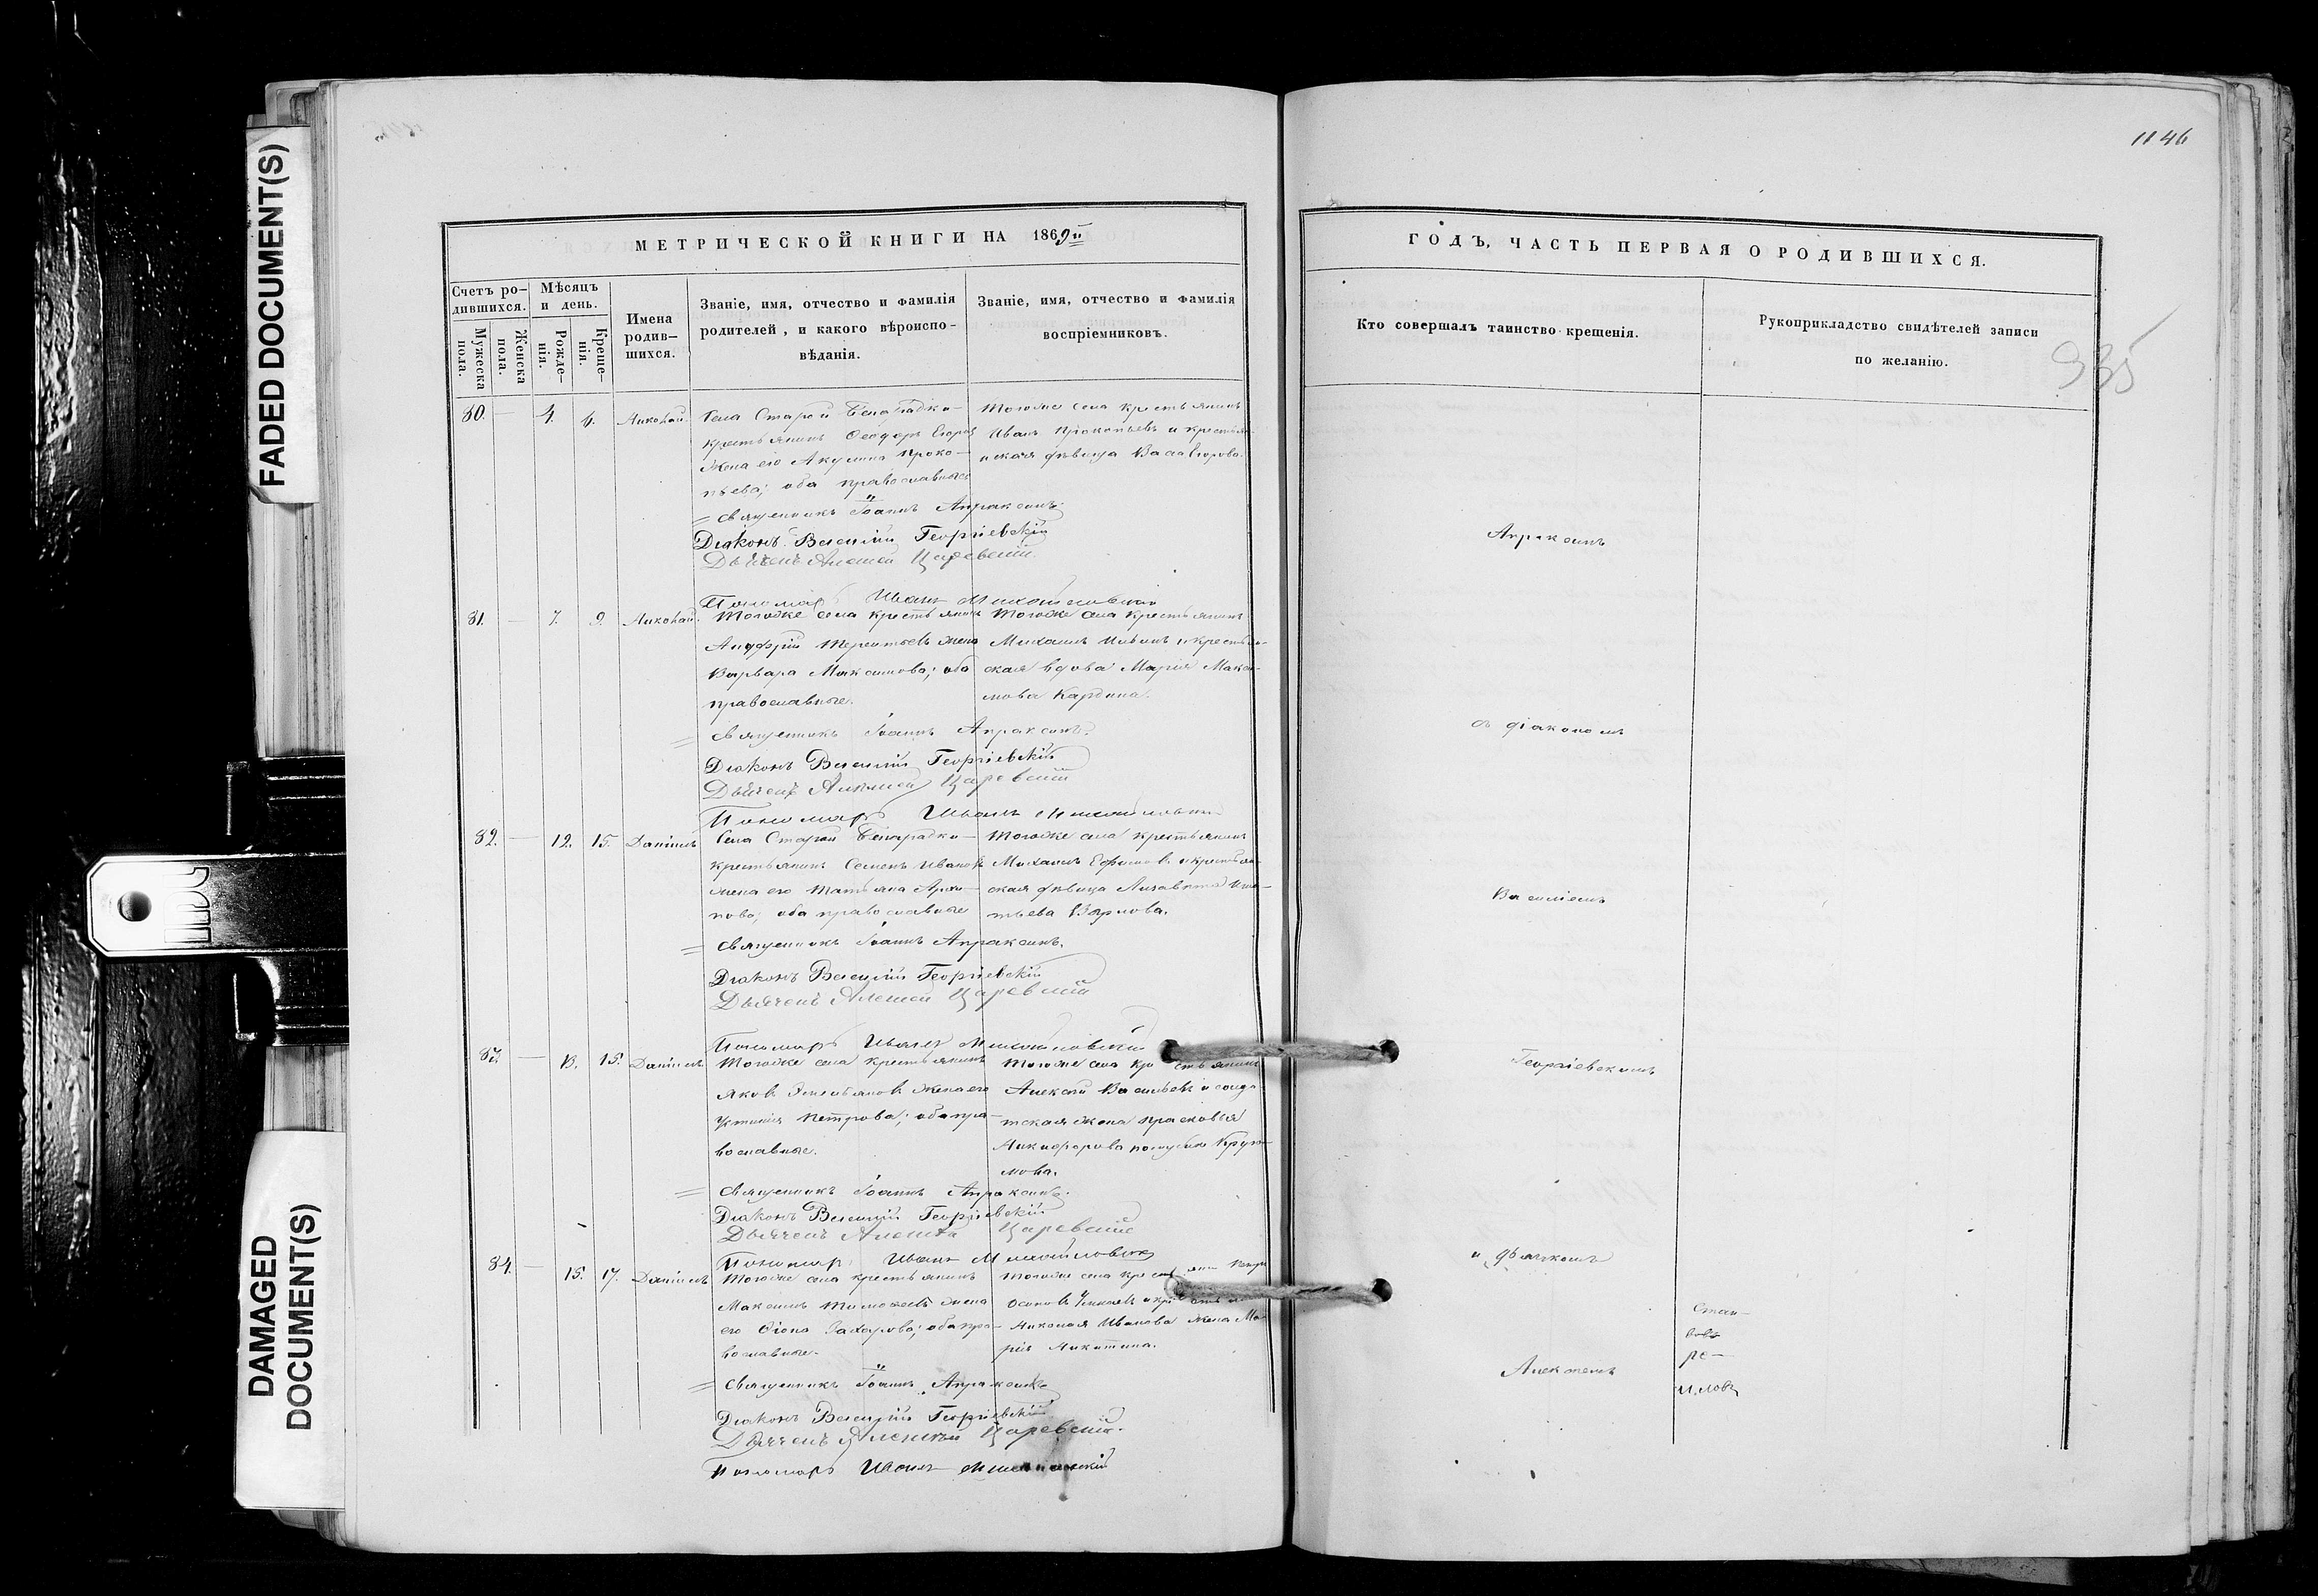 FADED DOCUMENT(S)
DAMAGED
DOCUMENT(S)
МЕТРИЧЕСКОЙ КНИГИ НА 1869й
Счетъ ро-
дившихся.
Мужеска
пола.
Женска
пола.
Мѣсяцъ
и день.
Рожде-
нія.
Креще-
нія.
Имена
родив-
шихся.
Званіе, имя, отчество и фамилія
родителей, и какого вѣроиспо-
вѣданія.
Званіе, имя, отчество и фамилія
воспріемниковъ.
80. — 4. 6. Николай.
Села Старой
крестьянинъ Ѳеодоръ Егоровъ
жена его Акулина Проко-
пьева; оба православные
Тогоже села крестьянинъ
Иванъ Прокопьевъ и крестья-
нская дѣвица Васса Егорова.
Священникъ Іоаннъ Апраксинъ.
Діаконъ Василій Георгіевскій
Дьячекъ Алексей Царевскій
Пономарь Иванъ Михайловскій
81. — 7. 9. Николай.
Тогоже села крестьянинъ
Терентьевъ жена
Варвара Максимова; оба
православные.
Тогоже села крестьянинъ
Михаилъ Ильинъ и крестьян-
ская вдова Марія Макси-
мова
Священникъ Іоаннъ Апраксинъ.
Діаконъ Василій Георгіевскій
Дьячекъ Алексей Царевскій
Пономарь Иванъ Михайловскій
82. — 12. 15. Даніилъ
Села Старой
крестьянинъ Семенъ Ивановъ
жена его Татьяна
пова; оба православные
Тогоже села крестьянинъ
Михаилъ Ефимовъ и крестьян-
ская дѣвица Лизавета
тьева
Священникъ Іоаннъ Апраксинъ.
Діаконъ Василій Георгіевскій
Дьячекъ Алексей Царевскій
Пономарь Иванъ Михайловскій
83. — 13. 15. Даніилъ
Тогоже села крестьянинъ
Яковъ Емельяновъ жена его
Устинія Петрова; оба пра-
вославные.
Тогоже села крестьянинъ
Алексей Васильевъ и солда-
тская жена Прасковья
Никифорова
мова.
Священникъ Іоаннъ Апраксинъ.
Діаконъ Василій Георгіевскій
Дьячекъ Алексей Царевскій
Пономарь Иванъ Михайловскій
84. — 15. 17. Даніилъ
Тогоже села крестьянинъ
Максимъ Тимофеевъ жена
его Захарова; оба пра-
вославные.
Тогоже села
Осиповъ
Николая Иванова жена Ма-
рія Никитина.
Священникъ Іоаннъ Апраксинъ
Діаконъ Василій Георгіевскій
Дьячекъ Алексей Царевскій.
Пономарь Иванъ Михайловскій
1146
ГОДЪ, ЧАСТЬ ПЕРВАЯ О РОДИВШИХСЯ.
Кто совершалъ таинство крещенія.
Рукоприкладство свидѣтелей записи
по желанію.
935
Апраксинъ
съ діакономъ
Василіемъ
Георгіевскимъ
и дьячкомъ
Алексеемъ